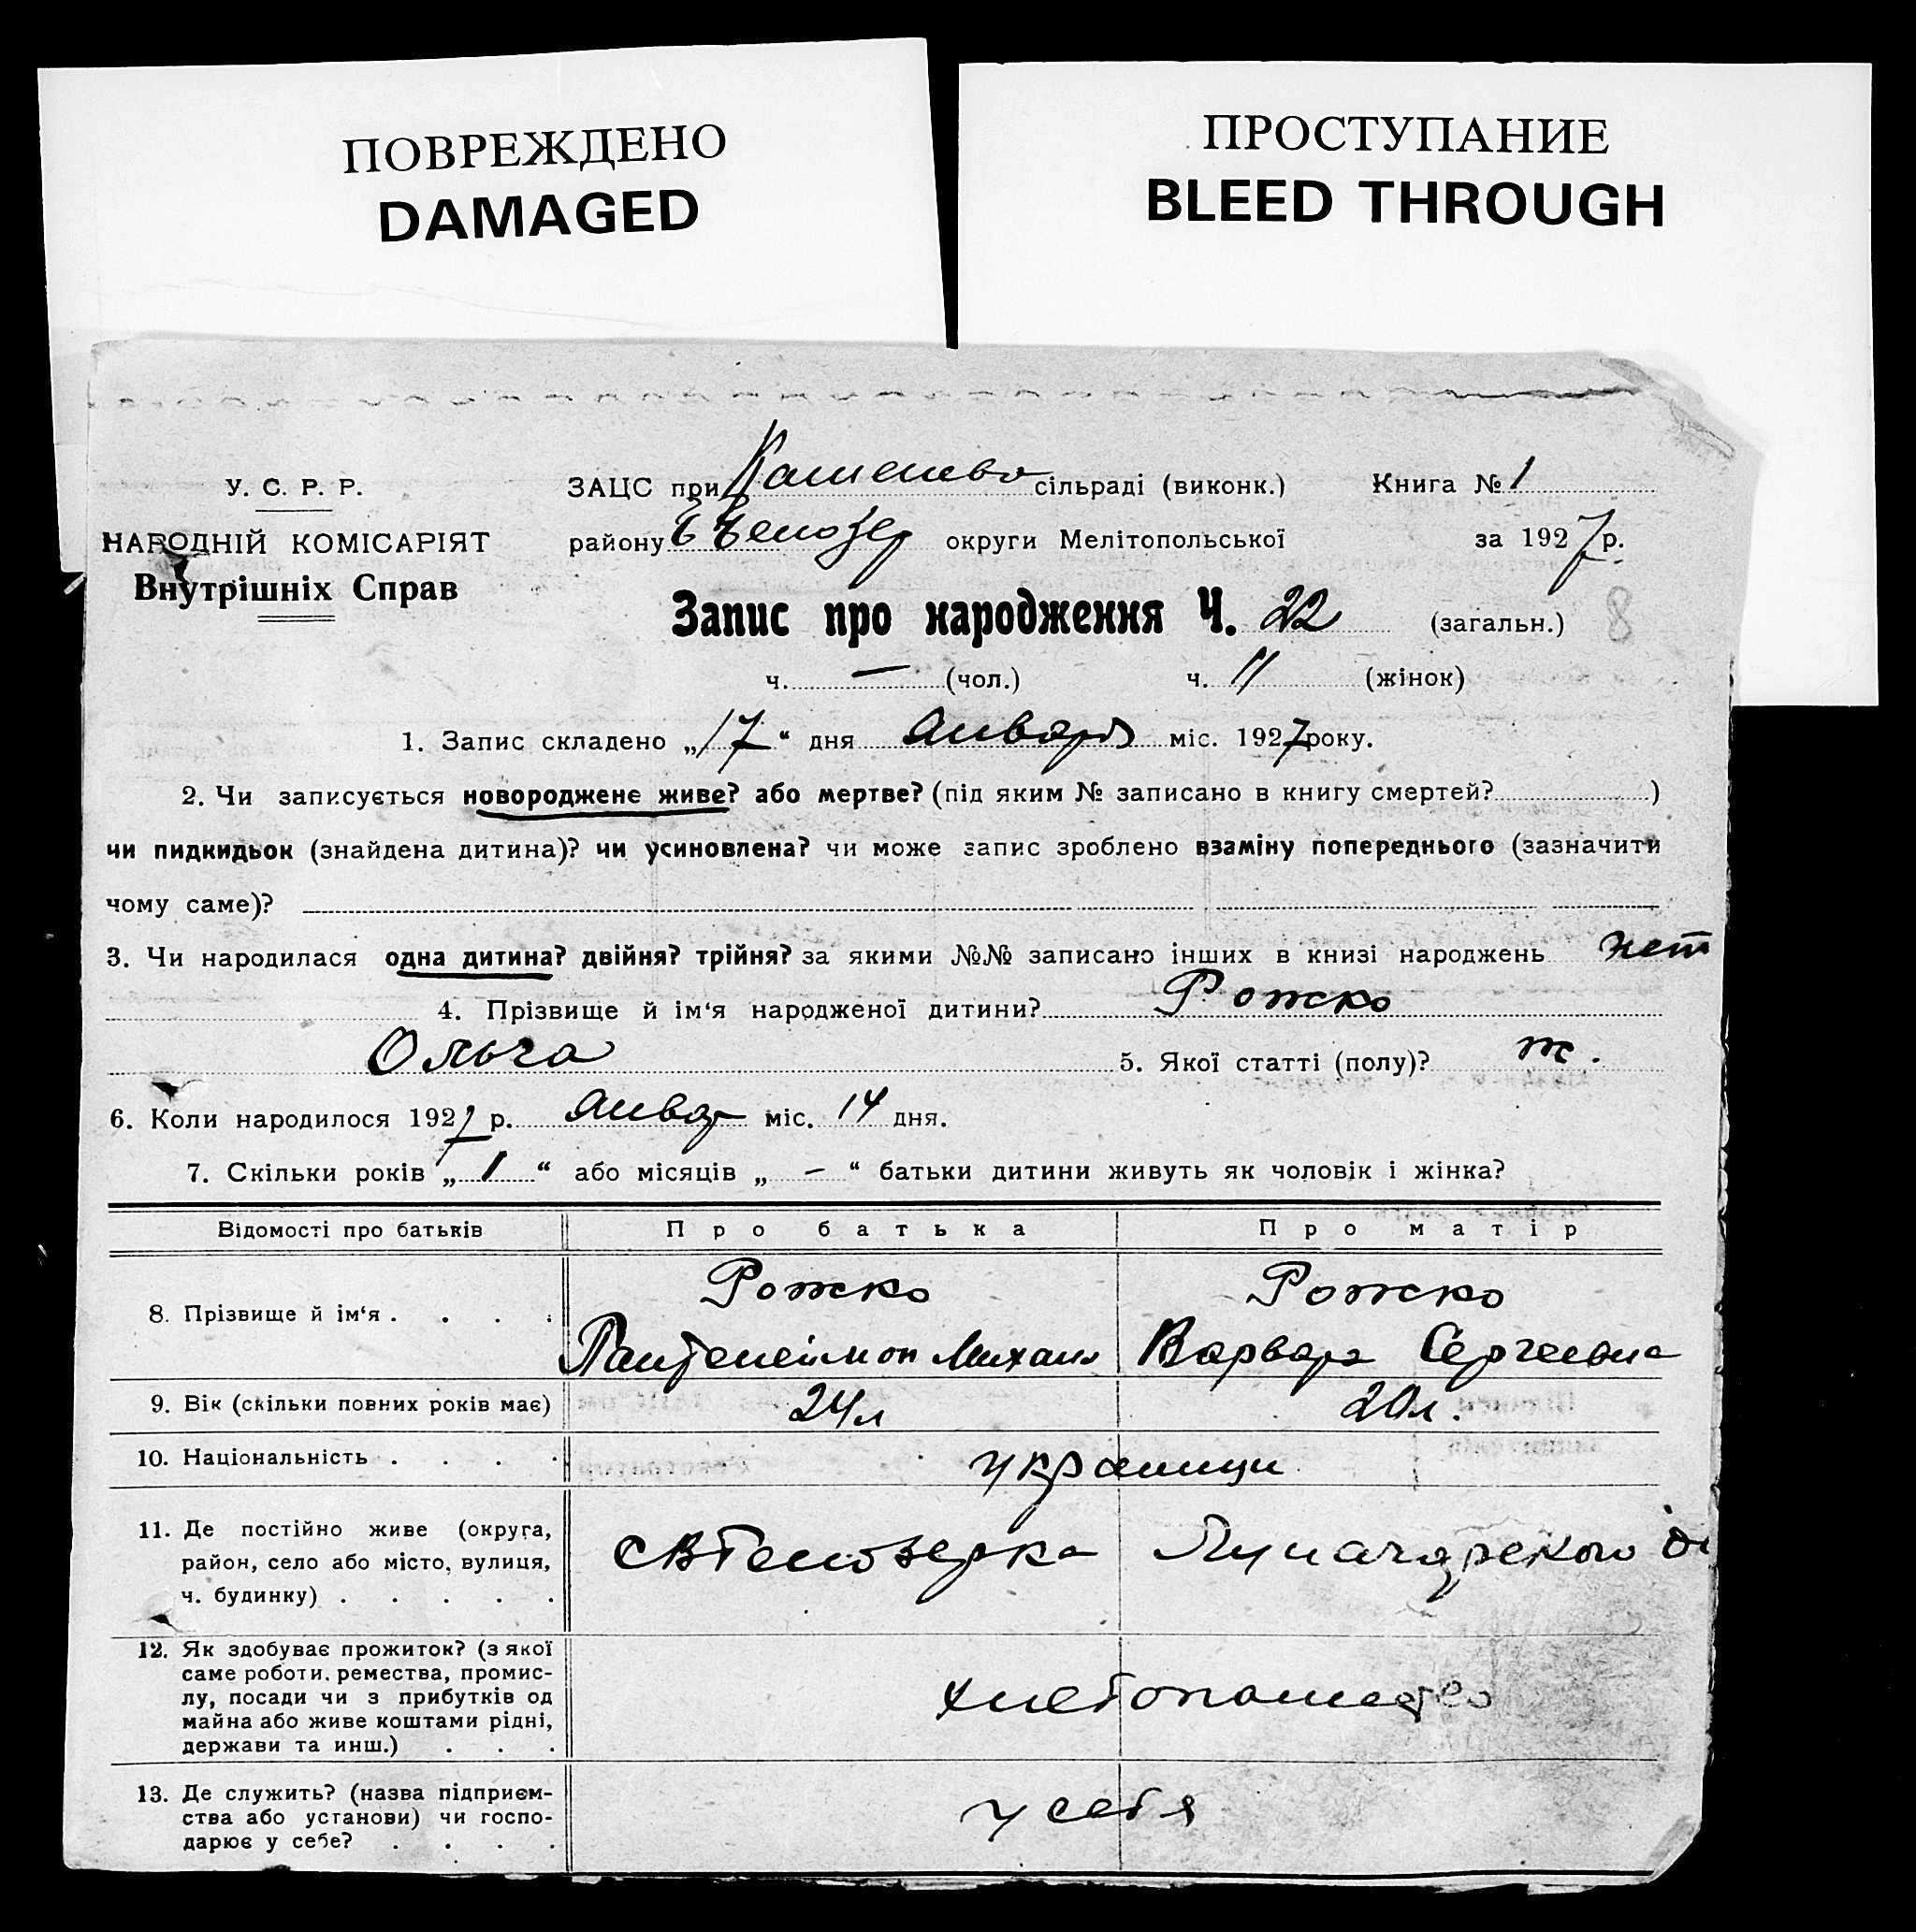 ПОВРЕЖДЕНО
DAMAGED
ПРОСТУПАНИЕ
BLEED THROUGH
У. С. Р. Р.
НАРОДНІЙ КОМІСАРІЯТ
Внутрішніх Справ
ЗАЦС при сільраді (виконк.) Книга № 1
району Б Белозер округи Мелітопольської за 1927 р.
Запис про народження Ч. 22 (загальн.) 8
ч. — (чол.) ч. 11 (жінок)
1. Запис складено „17“ дня Января міс. 1927 року.
2. Чи записується новороджене живе? або мертве? (під яким № записано в книгу смертей? )
чи пидкидьок (знайдена дитина)? чи усиновлена? чи може запис зроблено взаміну попереднього (зазначити
чому саме)?
3. Чи народилася одна дитина? двійня? трійня? за якими №№ записано інших в книзі народжень нет
4. Прізвище й ім‘я народженої дитини? Рожко
Ольга 5. Якої статті (полу)? ж.
6. Коли народилося 1927 р. Январ міс. 14 дня.
7. Скільки років „1“ або місяців „—“ батьки дитини живуть як чоловік і жінка?
Відомості про батьків Про батька Про матір
8. Прізвище й ім‘я . . . . Рожко Рожко
Пантелеймон Михаил Варвара Сергеевна
9. Вік (скільки повних років має) 24 л 20 л.
10. Національність . . . . украинци
11. Де постійно живе (округа,
район, село або місто, вулиця,
ч. будинку) . . . . .
с Б Белозерка Луначарского
12. Як здобуває прожиток? (з якої
саме роботи, ремества, промис-
лу, посади чи з прибутків од
майна або живе коштами рідні,
держави та инш.) . . .
хлебопашество
13. Де служить? (назва підприєм-
ства або установи) чи госпо-
дарює у себе? . . . .
у себя